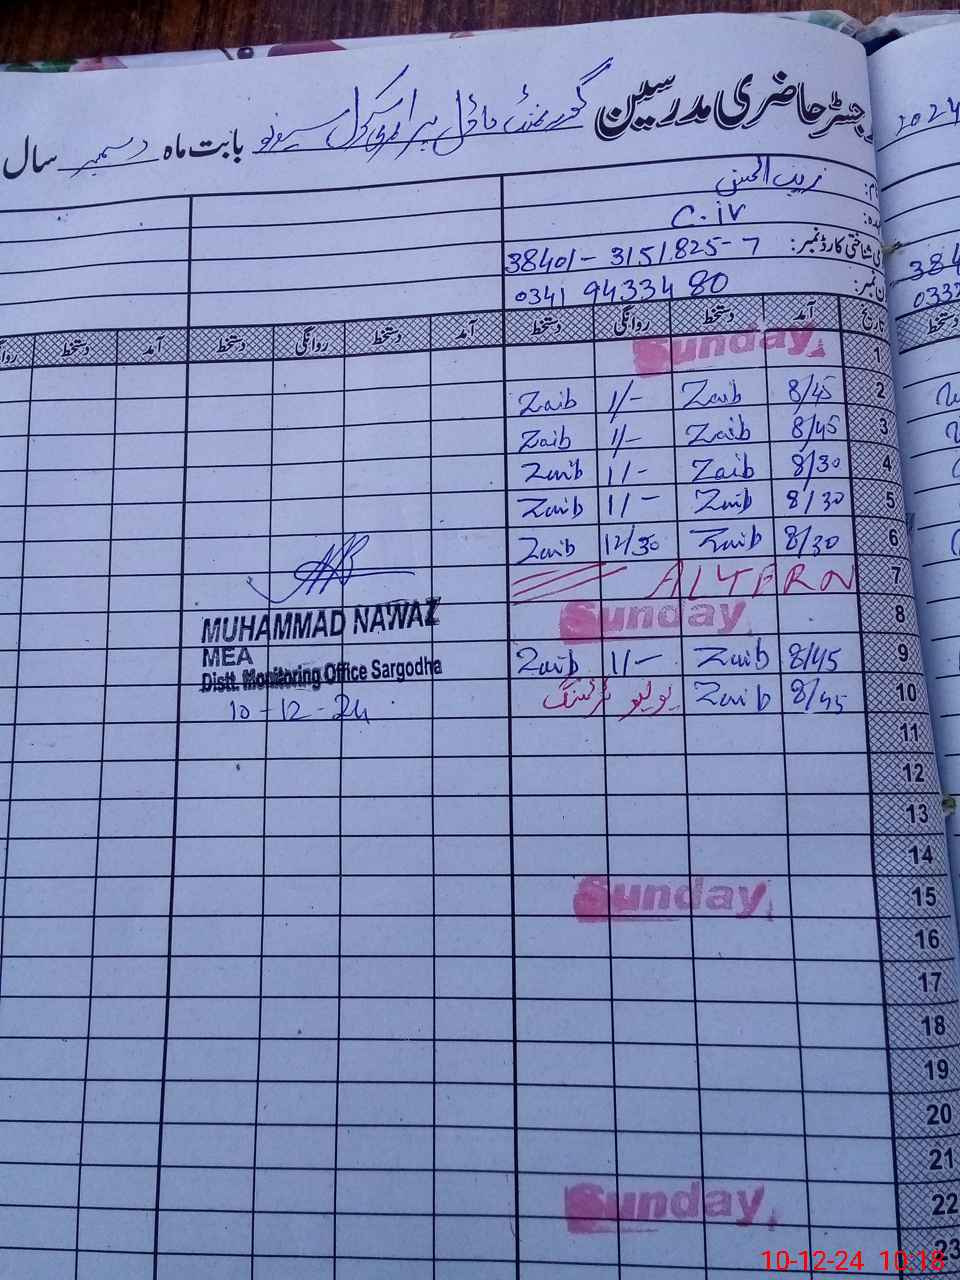 رجسٹر حاضری مدرسین گورنمنٹ ماڈل پرائمری سکول بابت ماہ دسمبر سال
2024
زیب الحسن
C.IV
شناختی کارڈ نمبر: 38401-3151825-7
0341 9433480
تاریخ آمد دستخط روانگی دستخط آمد دستخط روانگی دستخط آمد دستخط
1 Sunday
2 8/45 Zaib 1/- Zaib
3 8/45 Zaib 1/- Zaib
4 8/30 Zaib 1/- Zaib
5 8/30 Zaib 1/- Zaib
6 8/30 Zaib 12/30 Zaib
7 ALTERN
8 Sunday
9 8/45 Zaib 1/- Zaib
10 8/45 Zaib پولیو ٹریننگ
MUHAMMAD NAWAZ
MEA
Distt. Monitoring Office Sargodha
10-12-24
11
12
13
14
15 Sunday
16
17
18
19
20
21
22 Sunday
23
10-12-24 10:18